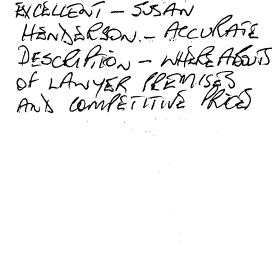 EXCELLENT - SUSAN
HENDERSON. - ACCURATE
DESCRIPTION - WHEREABOUTS
OF LAWYER PREMISES
AND COMPETITIVE PRICES